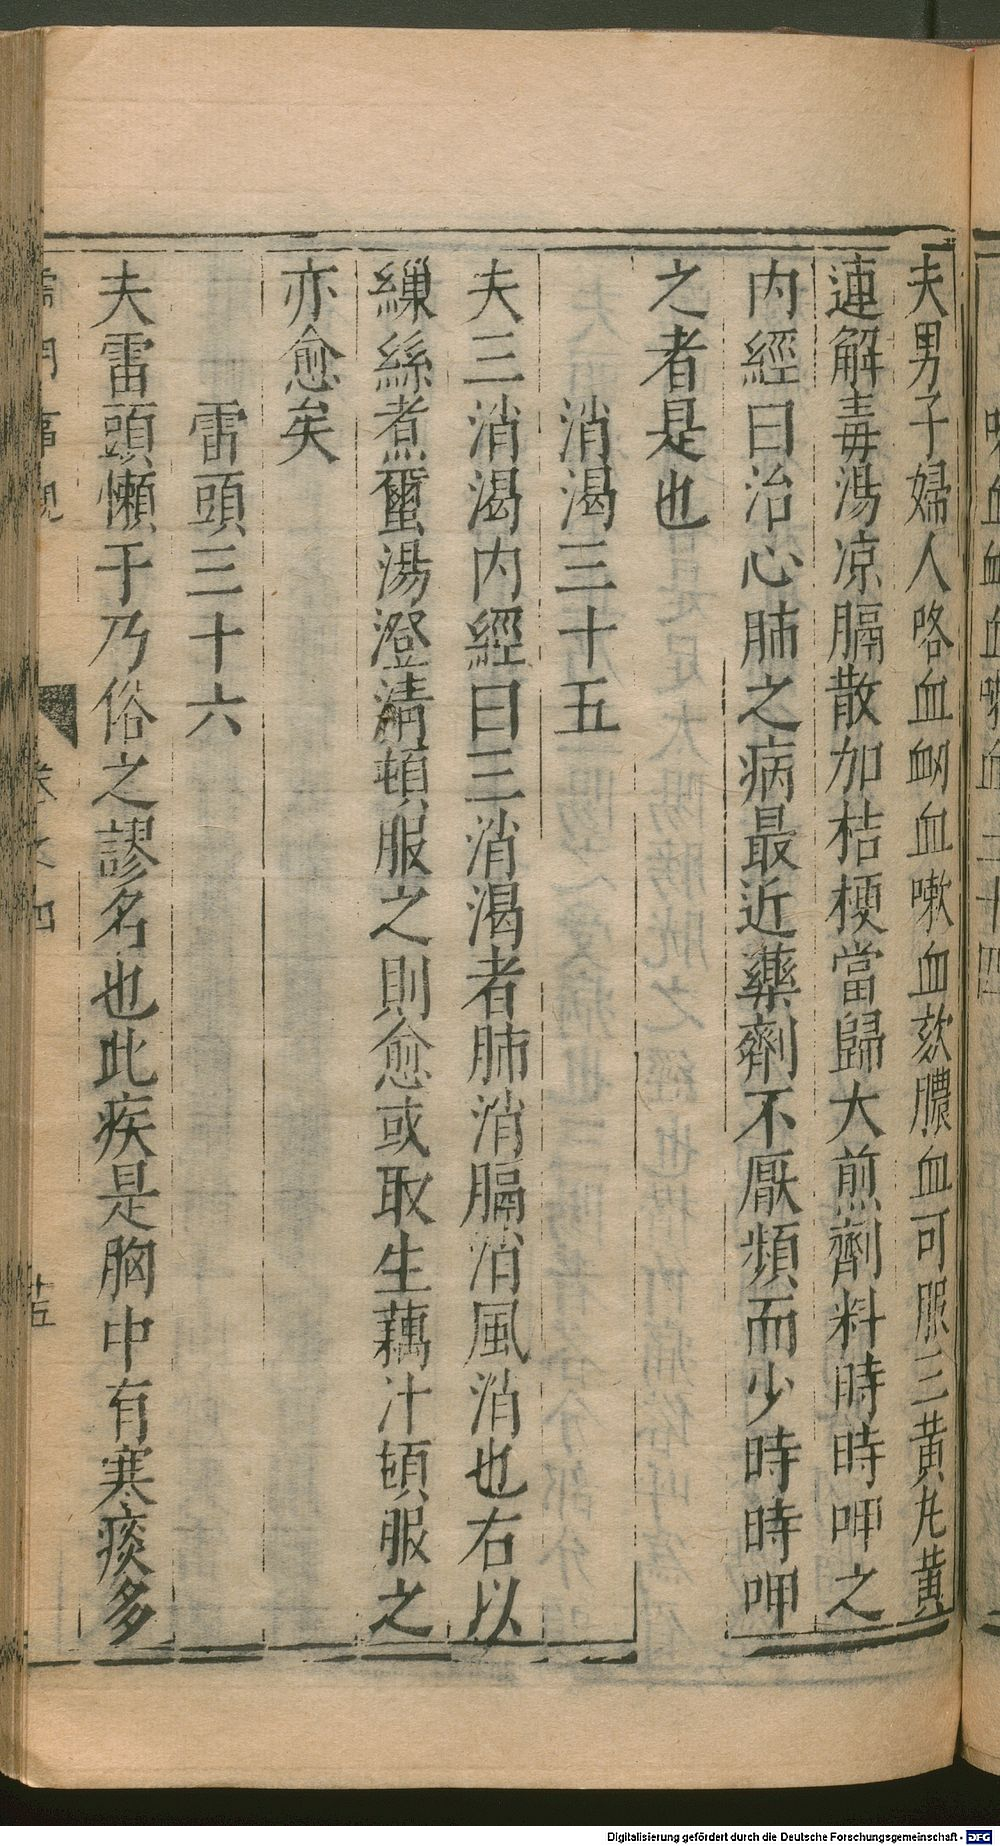 夫男子婦人咯血衂血嗽血欬膿血可服三黄丸黄
連解毒湯凉膈散加桔梗當歸大煎劑料時時呷之
内經曰治心肺之病最近藥劑不厭頻而少時時呷
之者是也
消渴三十五
夫三消渴内經曰三消渴者肺消膈消風消也右以
繅絲煮蠒湯澄清頓服之則愈或取生藕汁頓服之
亦愈矣
雷頭三十六
夫雷頭懶于乃俗之謬名也此疾是胸中有寒痰多
門事親
卷之四
Digitalisierung gefördert durch die Deutsche Forschungsgemeinschaft - DFG